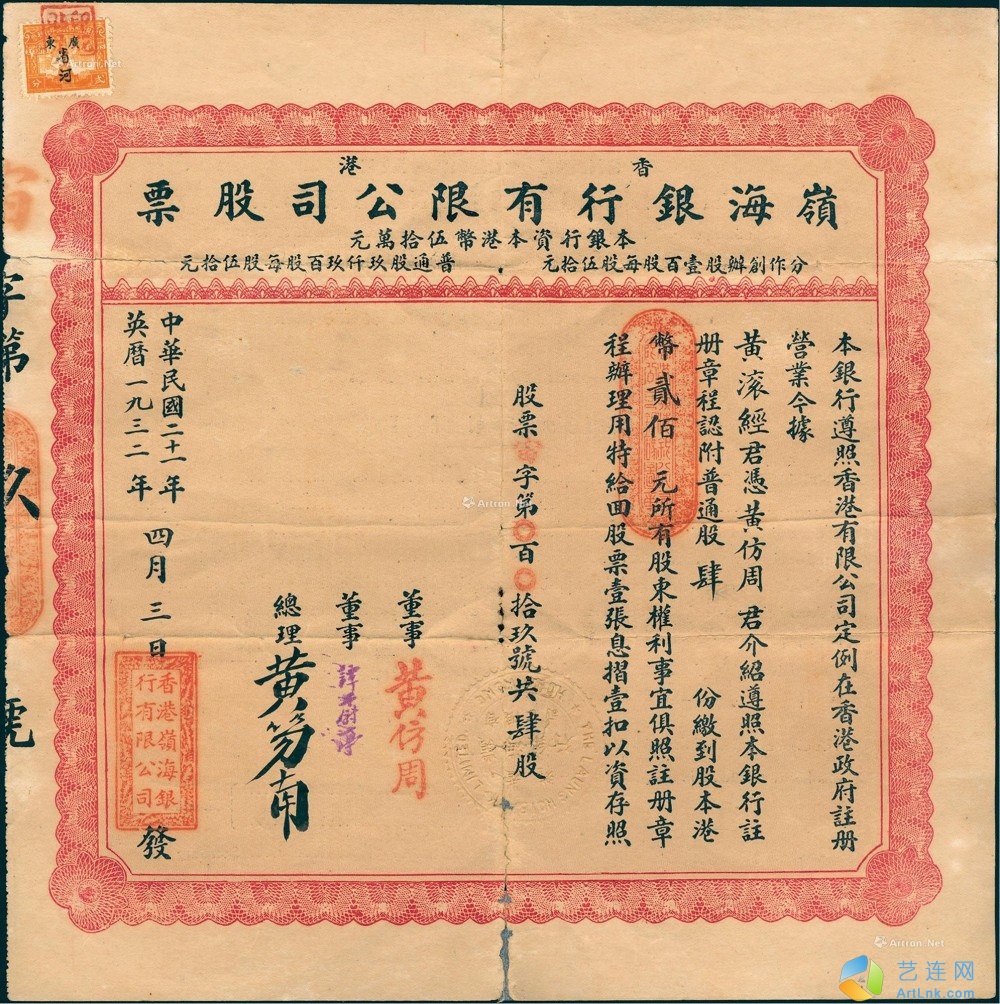 廣東
省河
香港
嶺海銀行有限公司股票
本銀行資本港幣伍拾萬元
分作創辦股壹百股每股伍拾元
普通股玖仟玖百股每股伍拾元
本銀行遵照香港有限公司定例在香港政府註册
營業今據
黃滚經君憑黃仿周君介紹遵照本銀行註
册章程認附普通股肆份繳到股本港
幣貳佰元所有股東權利事宜俱照註册章
程辦理用特給回股票壹張息摺壹扣以資存照
股票字第〇百〇拾玖號共肆股
董事 黃仿周
董事
總理
中華民國二十一年
英曆一九三二年 四月三日
香港嶺海銀行有限公司
發
字第
玖
號
Artron.Net
Artron.Net
Artron.Net
艺连网
ArtLnk.com